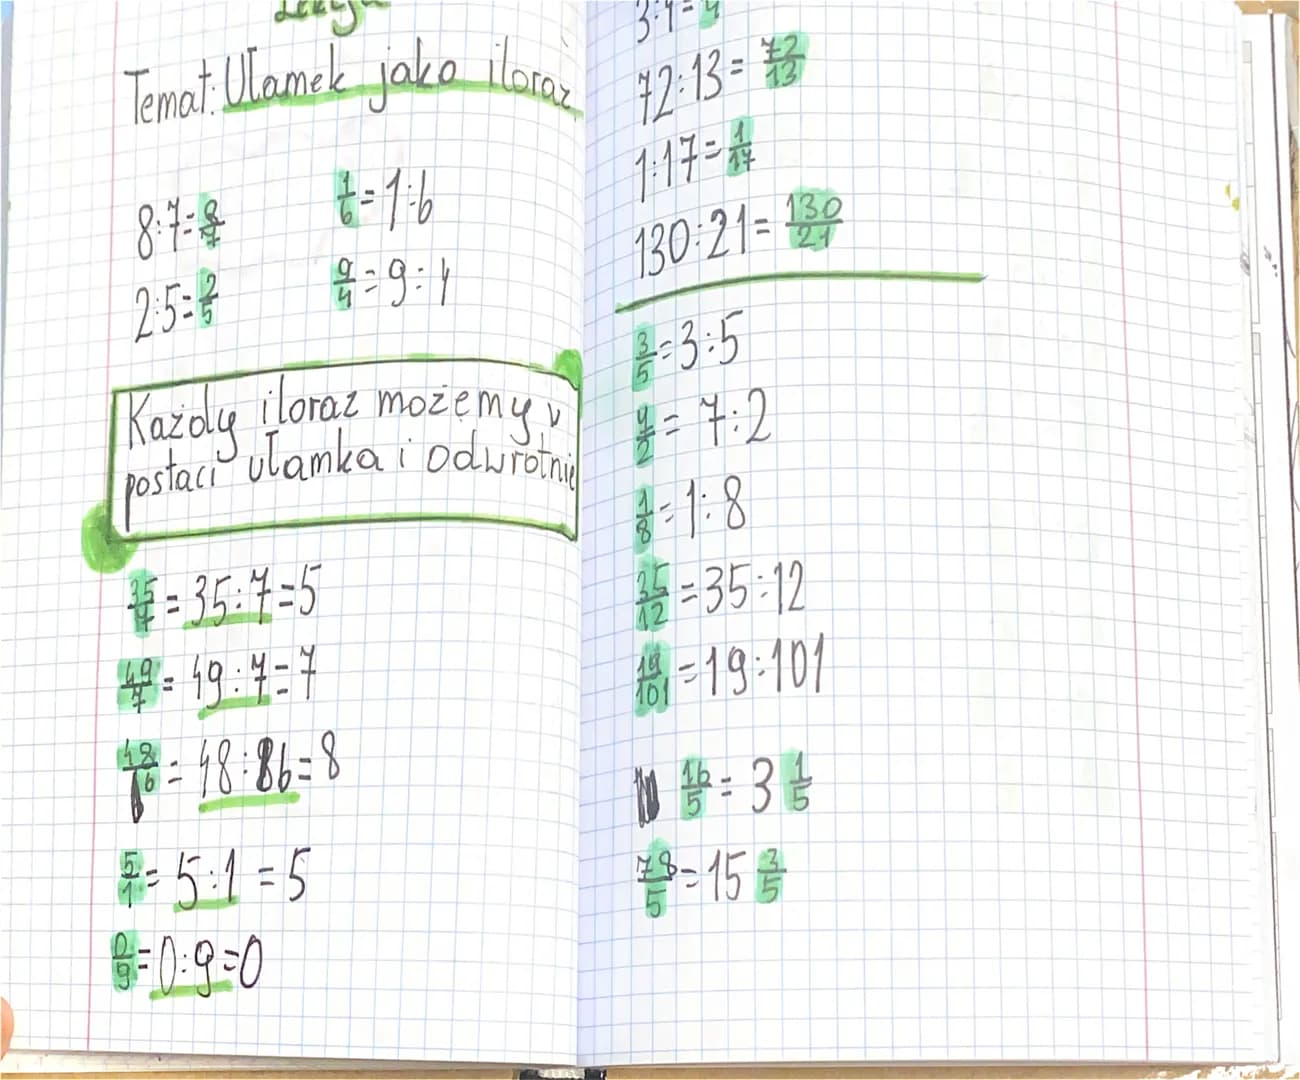 Temat: Ułamek jako iloraz
8:7=8/7 1/6=1:6
2:5=2/5 9/4=9:4
Każdy iloraz możemy w
postaci ułamka i odwrotnie
35/7=35:7=5
49/7=49:7=7
48/6=48:6=8
5/1=5:1=5
0/9=0:9=0
72:13=72/13
1:17=1/17
130:21=130/21
3/5=3:5
7/2=7:2
1/8=1:8
35/12=35:12
19/101=19:101
16/5=3 1/5
78/5=15 3/5